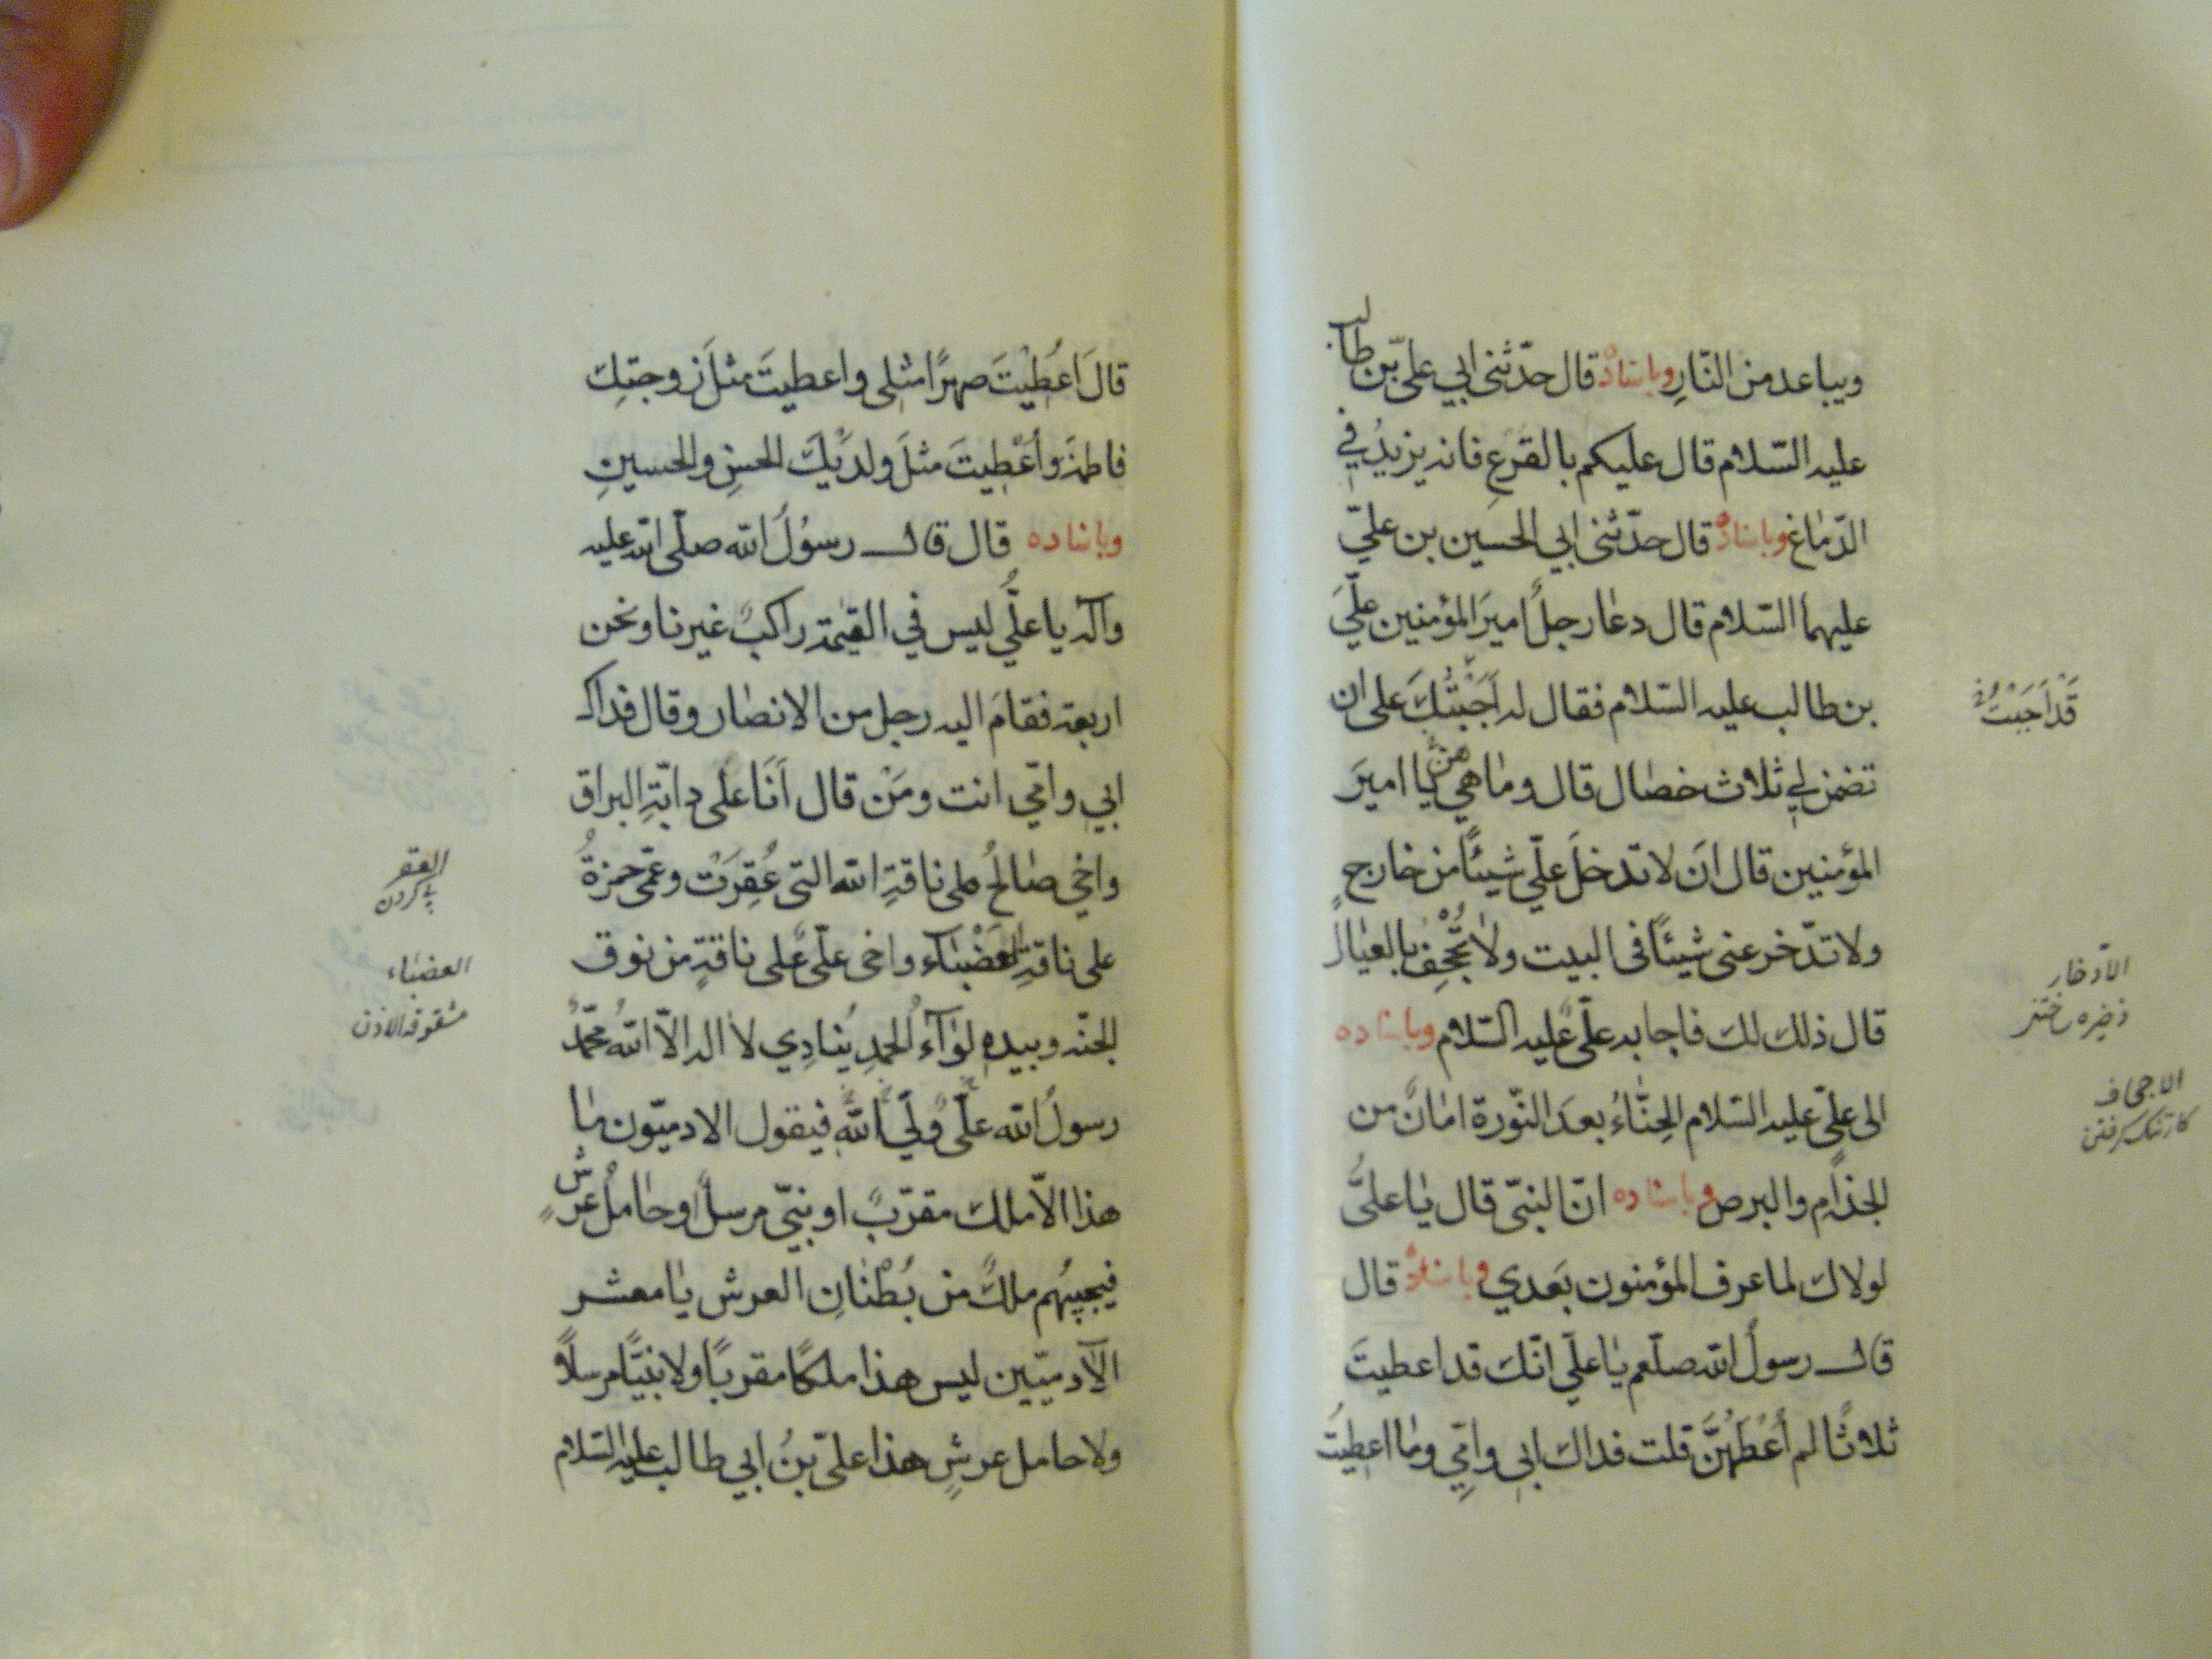 ويباعد من النّارِ وباسناده قال حدّثنى ابي علىّ بن طالب
عليه السّلام قال عليكم بالقَرْعِ فانه يزيدُ في
الدّماغ وباسناده قال حدّثنى ابي الحسين بن عليّ
عليهما السّلام قال دعا رجلٌ اميرَ المؤمنين عليَّ
بن طالب عليه السّلام فقال له اَجَبْتُكَ على ان
قَدْ اَجَبْتُ
تضمن لي ثلاث خصال قال وما هي هنّ يا اميرَ
المؤمنين قال انَ لا تدخلَ علىّ شيئًا من خارجٍ
ولا تدّخر عنى شيئًا فى البيت ولا تُجْحِفْ بالعيال
الادّخار
ذخيره ساختن
قال ذلك لك فاجابه علىّ عليه السّلام وباسناده
الاجحاف
كار تنك گرفتن
الى علىّ عليه السّلام الحِنّاءُ بعدَ النّورة امانٌ من
الجذام والبرص وباسناده انّ النبىّ قال يا علىُّ
لولاك لما عرف المؤمنون بَعدي وباسناده قال
قال رسولُ الله صلّعم يا علىّ انّك قد اعطيتَ
ثلاثًا لم أُعْطَهُنَّ قلت فداك ابى وامّي وما اعطيتُ
قالَ اُعطِيْتَ صهرًا مثلى واعطيتَ مثلَ زوجتِكَ
فاطمة وأُعْطِيتَ مثلَ ولدَيْكَ الحسنِ والحسينِ
وباسناده قال قال رسوُلُ الله صلّى الله عليه
وآله يا علىُّ ليس في القيٰمة راكبٌ غيرنا ونحن
اربعة فقامَ اليه رجل من الانصار وقال فداك
ابي وامّي انت ومَنْ قال اَنَا على دابّةِ البراق
واخي صالحُ على ناقةِ الله التى عُقِرَتْ وعمّى حمزةُ
العقر
پى كردن
على ناقةِ العَضْباء واخى علىّ على ناقةٍ من نوق
العضباء
مشقوقة الاذن
الجنّه وبيده لوآءُ الحمدِ يُنادِي لا اله الّا اللهُ محمّدٌ
رسولُ الله علىٌّ ولىُّ اللهِ فيقول الادميّون ما
هذا الّا ملك مقرّبٌ او نبىّ مرسلٌ او حاملُ عرشٍ
فيجيبُهم ملكٌ من بُطْنانِ العرش يا معشر
الآدميّين ليس هذا ملكًا مقربًا ولا نبيًّا مرسلًا
ولا حامل عرشٍ هذا علىّ بنُ ابي طالب عليه السّلام